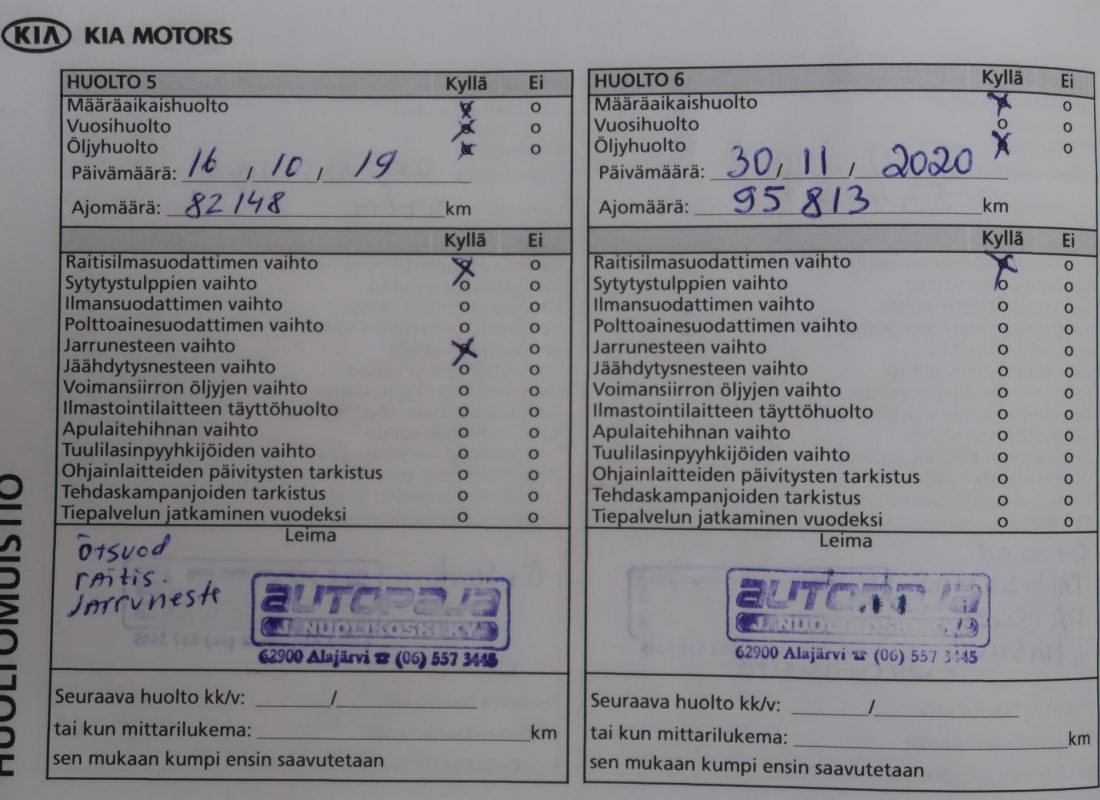 KIA KIA MOTORS
HUOLTO 5 Kyllä Ei
Määräaikaishuolto o
Vuosihuolto o
Öljyhuolto o
Päivämäärä: 16 / 10 / 19
Ajomäärä: 82148 km
Kyllä Ei
Raitisilmasuodattimen vaihto o
Sytytystulppien vaihto o o
Ilmansuodattimen vaihto o o
Polttoainesuodattimen vaihto o o
Jarrunesteen vaihto o
Jäähdytysnesteen vaihto o o
Voimansiirron öljyjen vaihto o o
Ilmastointilaitteen täyttöhuolto o o
Apulaitehihnan vaihto o o
Tuulilasinpyyhkijöiden vaihto o o
Ohjainlaitteiden päivitysten tarkistus o o
Tehdaskampanjoiden tarkistus o o
Tiepalvelun jatkaminen vuodeksi o o
Leima
ötsuod
raitis.
Jarruneste
AUTOPAJA
62900 Alajärvi ☎ (06) 557 3445
Seuraava huolto kk/v: /
tai kun mittarilukema: km
sen mukaan kumpi ensin saavutetaan
HUOLTO 6 Kyllä Ei
Määräaikaishuolto o
Vuosihuolto o o
Öljyhuolto o
Päivämäärä: 30 / 11 / 2020
Ajomäärä: 95 813 km
Kyllä Ei
Raitisilmasuodattimen vaihto o
Sytytystulppien vaihto o o
Ilmansuodattimen vaihto o o
Polttoainesuodattimen vaihto o o
Jarrunesteen vaihto o o
Jäähdytysnesteen vaihto o o
Voimansiirron öljyjen vaihto o o
Ilmastointilaitteen täyttöhuolto o o
Apulaitehihnan vaihto o o
Tuulilasinpyyhkijöiden vaihto o o
Ohjainlaitteiden päivitysten tarkistus o o
Tehdaskampanjoiden tarkistus o o
Tiepalvelun jatkaminen vuodeksi o o
Leima
62900 Alajärvi ☎ (06) 557 3445
Seuraava huolto kk/v: /
tai kun mittarilukema: km
sen mukaan kumpi ensin saavutetaan
HUOLTOMUISTIO